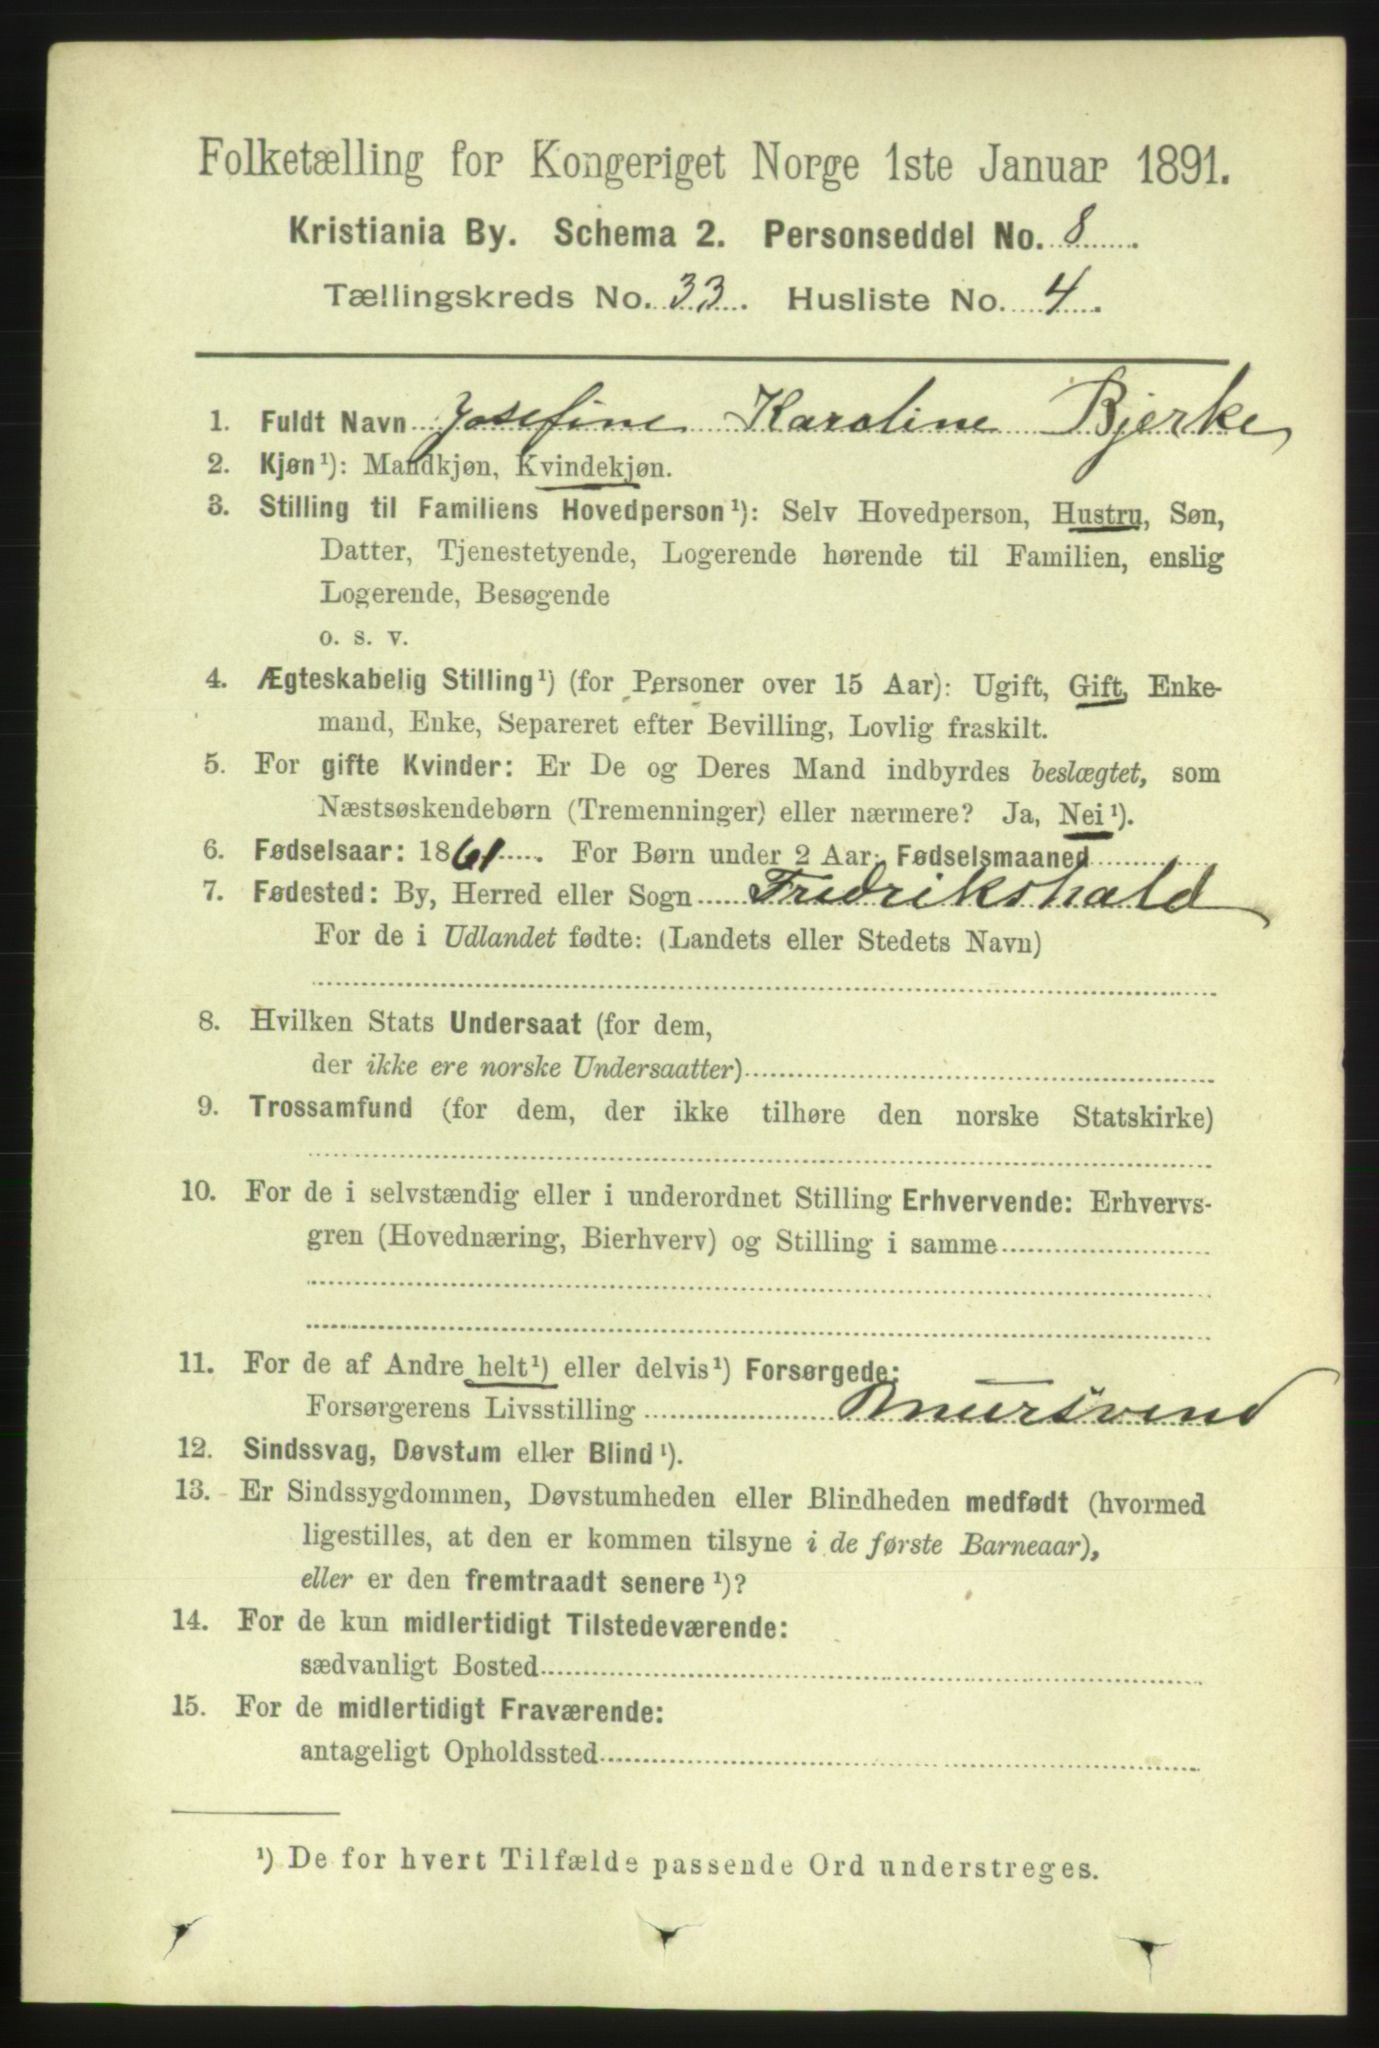 Folketælling for Kongeriget Norge 1ste Januar 1891.
Kristiania By. Schema 2. Personseddel No. 8
Tællingskreds No. 33. Husliste No. 4.
1. Fuldt Navn Josefine Karoline Bjerke
2. Kjøn¹): Mandkjøn, Kvindekjøn.
3. Stilling til Familiens Hovedperson¹): Selv Hovedperson, Hustru, Søn,
Datter, Tjenestetyende, Logerende hørende til Familien, enslig
Logerende, Besøgende
o. s. v.
4. Ægteskabelig Stilling¹) (for Personer over 15 Aar): Ugift, Gift, Enke-
mand, Enke, Separeret efter Bevilling, Lovlig fraskilt.
5. For gifte Kvinder: Er De og Deres Mand indbyrdes beslægtet, som
Næstsøskendebørn (Tremenninger) eller nærmere? Ja, Nei¹).
6. Fødselsaar: 1861. For Børn under 2 Aar: Fødselsmaaned
7. Fødested: By, Herred eller Sogn Fredrikshald
For de i Udlandet fødte: (Landets eller Stedets Navn)
8. Hvilken Stats Undersaat (for dem,
der ikke ere norske Undersaatter)
9. Trossamfund (for dem, der ikke tilhøre den norske Statskirke)
10. For de i selvstændig eller i underordnet Stilling Erhvervende: Erhvervs-
gren (Hovednæring, Bierhverv) og Stilling i samme
11. For de af Andre helt¹) eller delvis¹) Forsørgede:
Forsørgerens Livsstilling Murersvend
12. Sindssvag, Døvstum eller Blind¹).
13. Er Sindssygdommen, Døvstumheden eller Blindheden medfødt (hvormed
ligestilles, at den er kommen tilsyne i de første Barneaar),
eller er den fremtraadt senere¹)?
14. For de kun midlertidigt Tilstedeværende:
sædvanligt Bosted
15. For de midlertidigt Fraværende:
antageligt Opholdssted
¹) De for hvert Tilfælde passende Ord understreges.